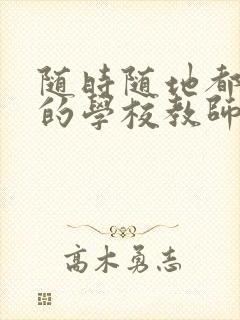 随時随地都
的學校教師
高木勇志